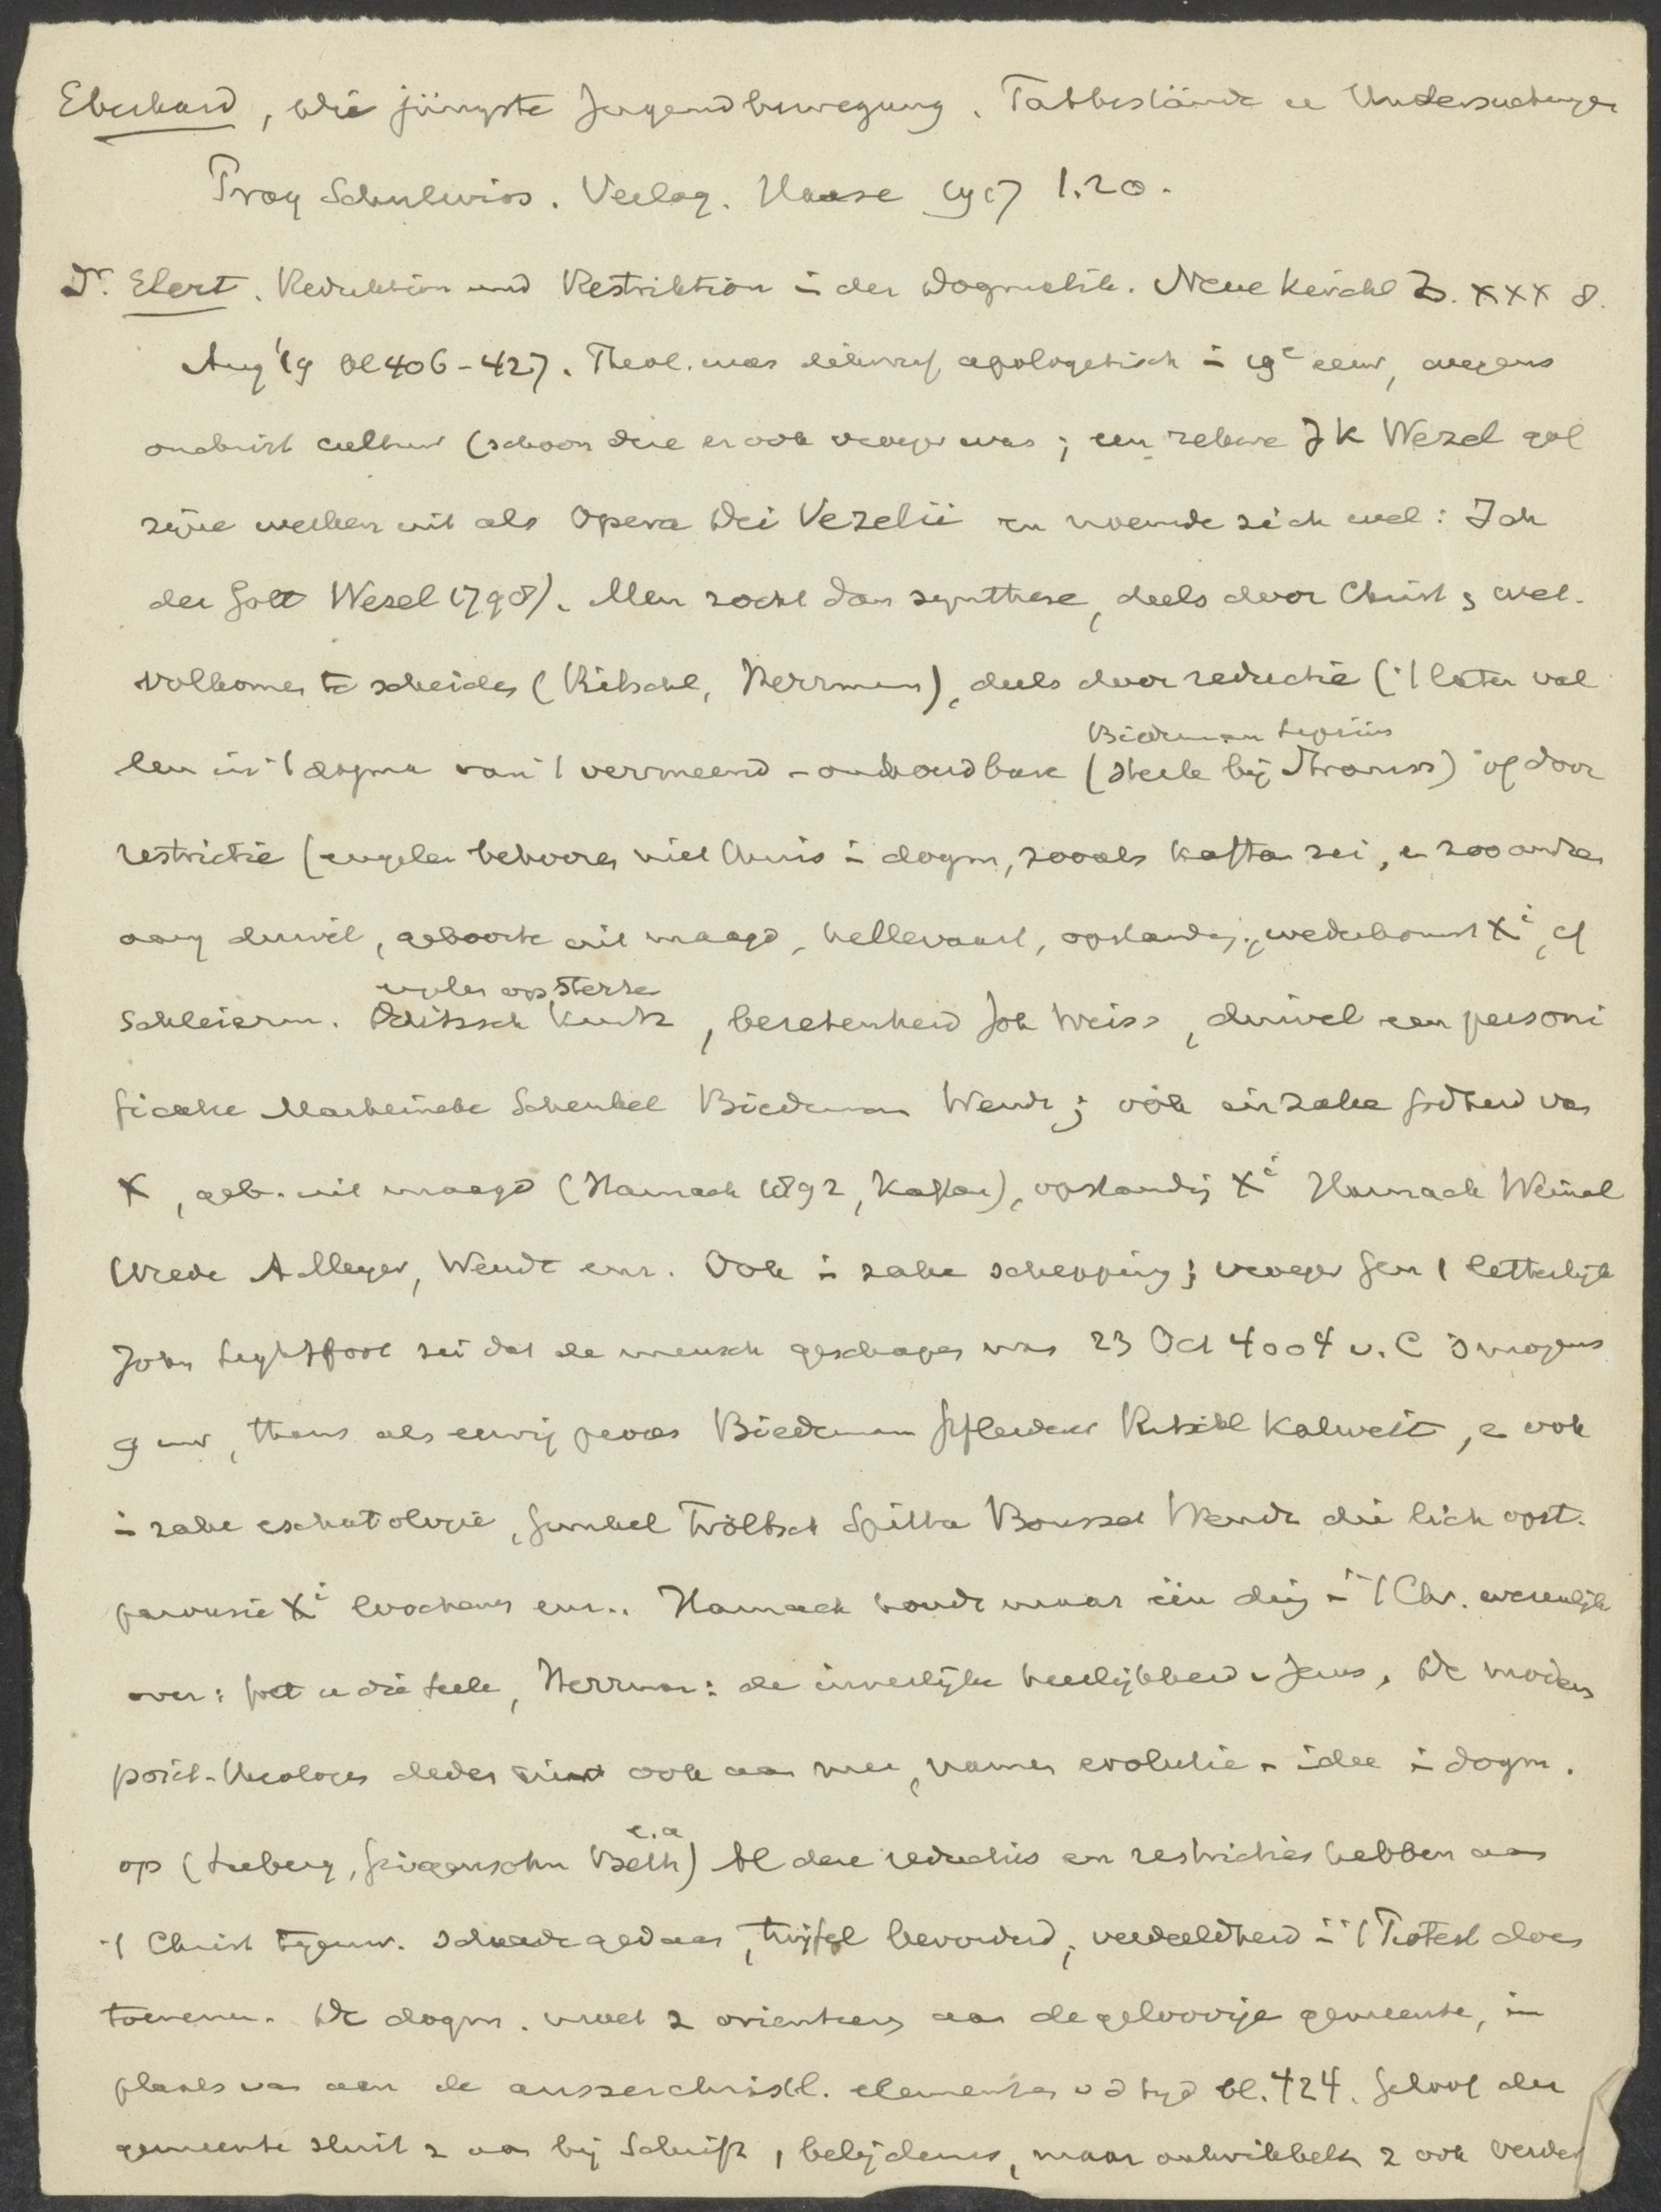 Eberhard, Die jüngste Jugendbewegung. Tatbestände u Untersuchungen
Prag Schulwiss. Verlag. Haase 1917 1.20.
Dr. Elert. Reduktion und Restriktion i der Dogmatik. Neue kirchl Z. XXX 8.
Aug '19 bl 406-427. Theol. was dikwijls apologetisch i 19e eeuw, wegens
onchrist cultuur (schoon die er ook vroeger was; een zekere J K Wezel gaf
zijne werken uit als Opera Dei Vezelii en noemde zich wel: Ich
der Gott Wezel 1798). Men zocht dan synthese, deels door Christ & wet.
volkomen te scheiden (Ritschl, Herrmann), deels door reductie ('t laten val
len in 't dogma van 't vermeend-onhoudbare (sterk bij Strauss) of door
Biederman Lipsius
restrictie (engelen behooren niet thuis i dogm, zooals Kaftan zei, e zoo andren
aang duivel, geboorte uit maagd, hellevaart, opstandg., wederkomst Xi, cf
Schleierm. Delitzsch Kurtz, bezetenheid Joh Weiss, duivel een personi
englen op sterren
ficatie Marheineke Schenkel Biederman Wendt; ook inzake godheid van
X, geb. uit maagd (Harnack 1892, Kaftan), opstandg Xi Harnack Weinel
Wrede A Meyer, Wendt enz. Ook i zake schepping; vroeger Gen 1 letterlijk
John Lightfoot zei dat de mensch geschapen was 23 Oct 4004 v. C 's morgens
9 uur, thans als eeuwig proces Biederman Pfleiderer Ritschl Kalweit, e ook
i zake eschatologie, Gunkel Tröltsch Spitta Bousset Wendt die lich opst.
parousie Xi loochenen enz.. Harnack houdt maar één ding i 't Chr. wezenlijk
over: Gott u die Seele, Herrman: de innerlijke heerlijkheid v Jezus. De modern
posit-theologen deden ook aan mee, namen evolutie-idee i dogm.
op (Seeberg, Girgensohn Beth e.a) Al deze reducties en restricties hebben aan
't Christ tegenw. schade gedaan, twijfel bevorderd, verdeeldheid i 't Protest doen
toenemen. De dogm. moet z orienteeren aan de geloovige gemeente, in
plaats van aan de ausserchristl. elementen v d tijd bl. 424. Geloof der
gemeente sluit z aan bij Schrift, belijdenis, maar ontwikkelt z ook verder